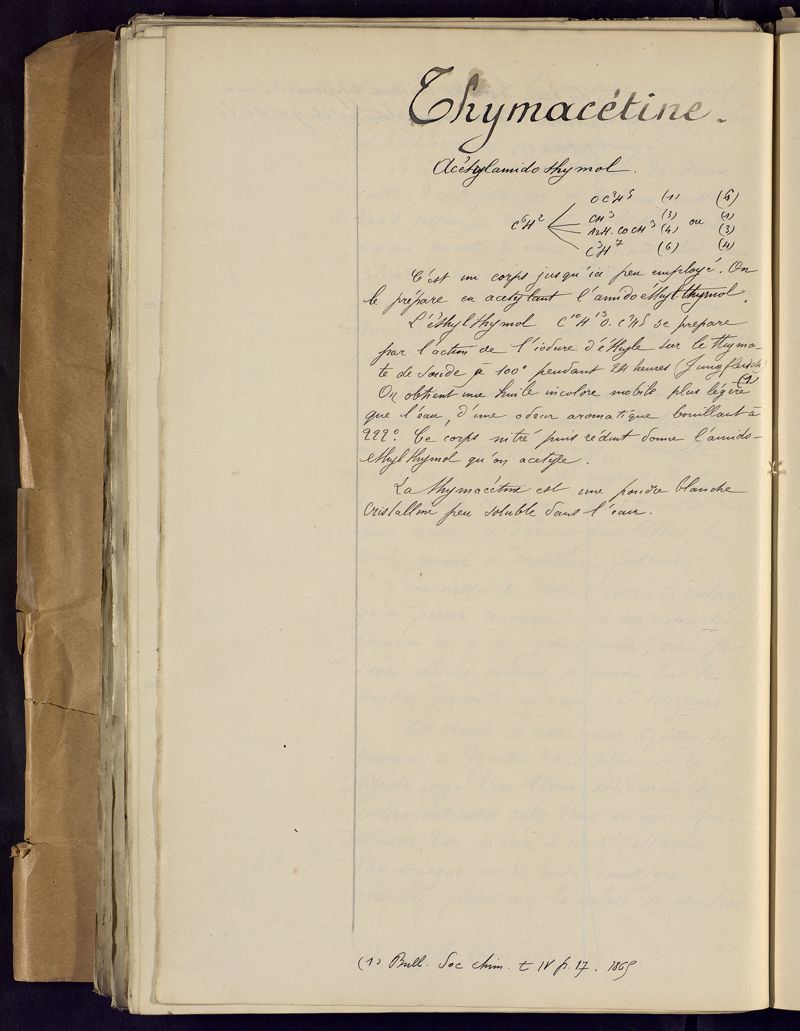 Thymacétine.
Acétylamidothymol.
OC²H⁵ (1) (6)
C⁶H² CH³ (3) ou (1)
AzH.COCH³ (4) (3)
C³H⁷ (6) (4)
C'est un corps jusqu'ici peu employé. On
le prépare en acetylant l'amidoéthylthymol.
L'éthylthymol C¹⁰H¹³O.C²H⁵ se prepare
par l'action de l'iodure d'éthyle sur le thyma-
te de soude à 100° pendant 24 heures (Jungfleisch)
(1)
On obtient une huile incolore mobile plus légère
que l'eau, d'une odeur aromatique bouillant à
222°. Ce corps nitré puis réduit donne l'amido-
ethylthymol qu'on acetyle.
La thymacétine est une poudre blanche
cristalline peu soluble dans l'eau.
(1) Bull. Soc chim. t IV p. 17. 1865